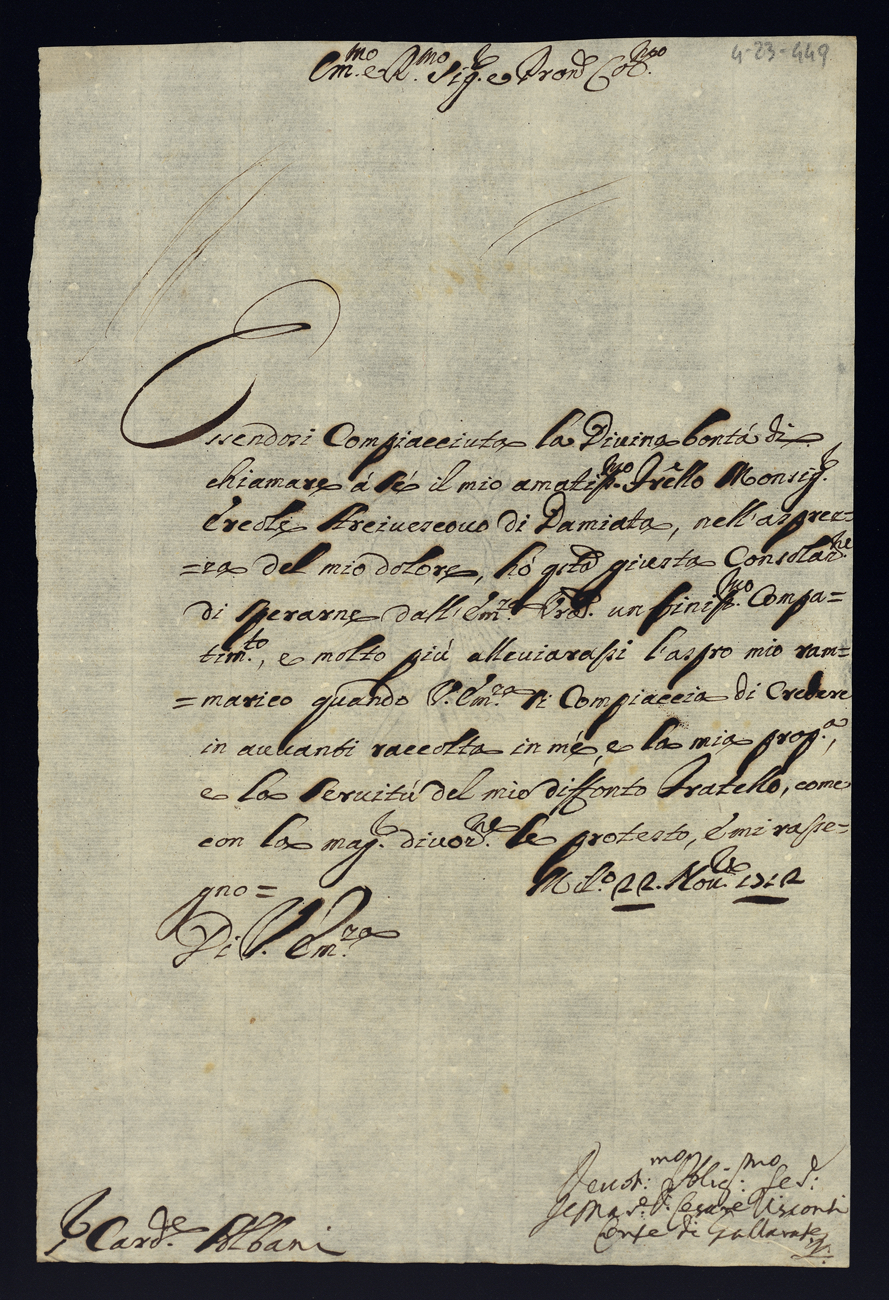 4-23-449
Em.mo e R.mo Sig.r e Pron Col.mo
Essendosi Compiacciuta la Divina bontá di
chiamare á sé il mio amatiss.mo Frẽllo Monsig.r
Ercole Arcivescovo di Damiata, nell'asprez=
=za del mio dolore, hó q.sta giusta Consolaz.ne
di sperarne dall'Em.za Vra. un finiss.mo Compa=
tim.to, e molto piú alleviarassi l'aspro mio ram=
=marico quando V. Em.za si Compiaccia di Credere
in avvanti raccolta in mé, e la mia prop.a,
e la servitú del mio diffonto Fratello, come
con la mag.r divoz.ne lé protesto, é mi rasse=
gno=
Mil.o 22. Nov.re 1712
Di V. Em.za
Devot.mo Oblig.mo Se.d:
Cesare Visconti
Conte di Gallarate
S.r Card.le Albani